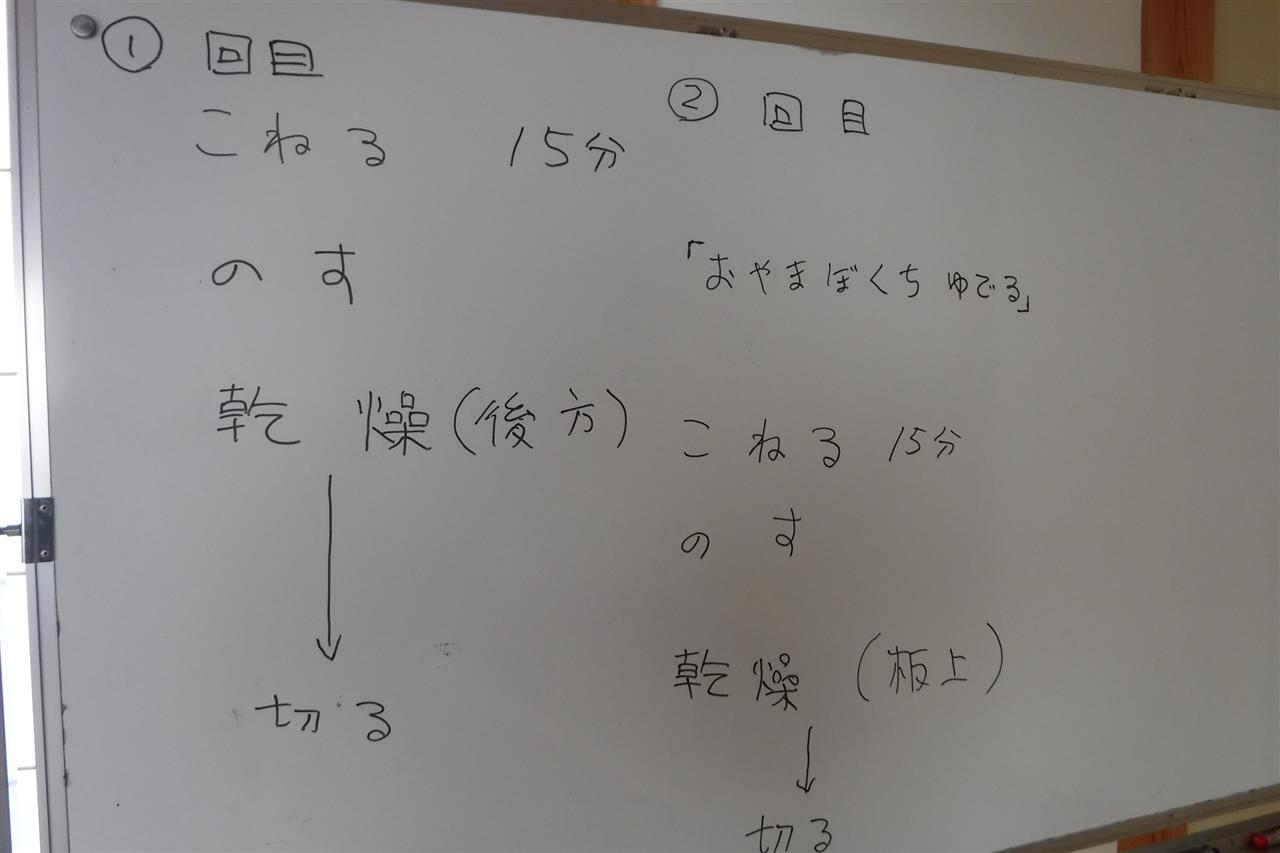 ① 回目
こねる 15分
のす
乾燥(後方)
↓
切る
② 回目
「おやまぼくち ゆでる」
こねる 15分
のす
乾燥(板上)
↓
切る